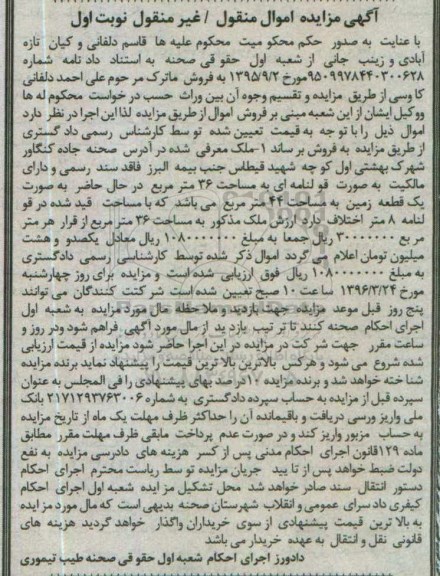 آگهی مزایده اموال منقول / غیر منقول نوبت اول
با عنایت به صدور حکم محکو میت محکوم علیه ها قاسم دلفانی و کیان تازه
آبادی و زینب جانی از شعبه اول حقو قی صحنه به استناد داد نامه شماره
۹۵۰۹۹۷۸۴۴۰۳۰۰۶۲۸مورخ ۱۳۹۵/۹/۲ به فروش ماترک مر حوم علی احمد دلفانی
کا وسی از طریق مزایده و تقسیم وجوه آن بین وراث حسب در خواست محکوم له ها
ووکیل ایشان از این شعبه مبنی بر فروش اموال از طریق مزایده لذا این اجرا در نظر دارد
اموال ذیل را با تو جه به قیمت تعیین شده تو سط کارشناس رسمی داد گستری
از طریق مزایده به فروش بر ساند ۱-ملک معرفی شده در آدرس صحنه جاده کنگاور
شهرک بهشتی اول کو چه شهید قیطاس جنب بیمه البرز فاقد سند رسمی و دارای
مالکیت به صورت قو لنامه ای به مساحت ۳۶ متر مربع در حال حاضر به صورت
یک قطعه زمین به مساحت ۴۴ متر مربع می باشد که با مساحت قید شده در قو
لنامه ۸ متر اختلاف دارد ارزش ملک مذکور به مساحت ۳۶ متر مربع از قرار هر متر
مر بع ۳۰۰۰۰۰۰۰ ریال جمعا به مبلغ ۱۰۸۰۰۰۰۰۰۰ ریال معادل یکصدو و هشت
میلیون تومان اعلام می گردد اموال ذکر شده توسط کارشناس رسمی دادگستری
به مبلغ ۱۰۸۰۰۰۰۰۰۰ ریال فوق ارزیابی شده است و مزایده برای روز چهارشنبه
مورخ ۱۳۹۶/۳/۲۴ ساعت ۱۰ صبح تعیین شده است شر کتت کنندگان می توانند
پنج روز قبل موعد مزایده جهت بازدید و ملا حظه مال مورد مزایده به شعبه اول
اجرای احکام صحنه کنند تا تر تیب بازد ید از مال مورد آگهی فراهم شود ودر روز و
ساعت مقرر جهت شر کت در مزایده در این اجرا حاضر شود مزایده از قیمت ارزیابی
شده شروع می شود و هرکس بالاترین بالا ترین قیمت را پیشنهاد نماید برنده مزایده
شنا خته خواهد شد و برنده مزایده ۱۰درصد بهای پیشنهادی را فی المجلس به عنوان
سپرده قبل از مزایده به حساب سپرده دادگستری به شماره ۲۱۷۱۲۹۳۷۶۳۰۰۶ بانک
ملی واریز ورسی دریافت و باقیمانده آن را حداکثر ظرف مهلت یک ماه از تاریخ مزایده
به حساب مزبور واریز کند و در صورت عدم پرداخت مابقی ظرف مهلت مقرر مطابق
ماده ۱۲۹قانون اجرای احکام مدنی پس از کسر هزینه های دادرسی مزایده به نفع
دولت ضبط خواهد پس از تا یید جریان مزایده تو سط ریاست محترم اجرای احکام
دستور انتقال سند صادر خواهد شد محل تشکیل مز ایده شعبه اول اجرای احکام
کیفری داد سرای عمومی و انقلاب شهرستان صحنه بدیهی است که مال مورد مزایده
به بالا ترین قیمت پیشنهادی از سوی خریداران واگذار خواهد گردید هزینه های
قانونی نقل و انتقال به عهده خریدار می باشد
دادورز اجرای احکام شعبه اول حقو قی صحنه طیب تیموری